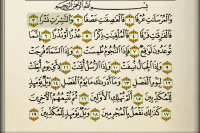 بِسْمِ اللَّهِ الرَّحْمَٰنِ الرَّحِيمِ
وَالْمُرْسَلَٰتِ عُرْفًا ١ فَالْعَٰصِفَٰتِ عَصْفًا ٢ وَالنَّٰشِرَٰتِ نَشْرًا ٣
فَالْفَٰرِقَٰتِ فَرْقًا ٤ فَالْمُلْقِيَٰتِ ذِكْرًا ٥ عُذْرًا أَوْ نُذْرًا ٦ إِنَّمَا
تُوعَدُونَ لَوَٰقِعٌ ٧ فَإِذَا النُّجُومُ طُمِسَتْ ٨ وَإِذَا السَّمَاءُ فُرِجَتْ
٩ وَإِذَا الْجِبَالُ نُسِفَتْ ١٠ وَإِذَا الرُّسُلُ أُقِّتَتْ ١١ لِأَيِّ يَوْمٍ أُجِّلَتْ ١٢
لِيَوْمِ الْفَصْلِ ١٣ وَمَا أَدْرَىٰكَ مَا يَوْمُ الْفَصْلِ ١٤ وَيْلٌ يَوْمَئِذٍ
لِّلْمُكَذِّبِينَ ١٥ أَلَمْ نُهْلِكِ الْأَوَّلِينَ ١٦ ثُمَّ نُتْبِعُهُمُ الْآخِرِينَ
١٧ كَذَٰلِكَ نَفْعَلُ بِالْمُجْرِمِينَ ١٨ وَيْلٌ يَوْمَئِذٍ لِّلْمُكَذِّبِينَ ١٩